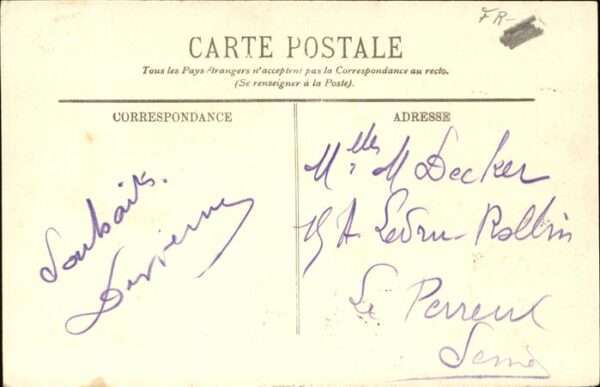 FR-
CARTE POSTALE
Tous les Pays étrangers n'acceptent pas la Correspondance au recto.
(Se renseigner à la Poste).
CORRESPONDANCE
Souhaits.
ADRESSE
Mlles M Decker
A Ledru-Rollin
Le Perreux
Seine